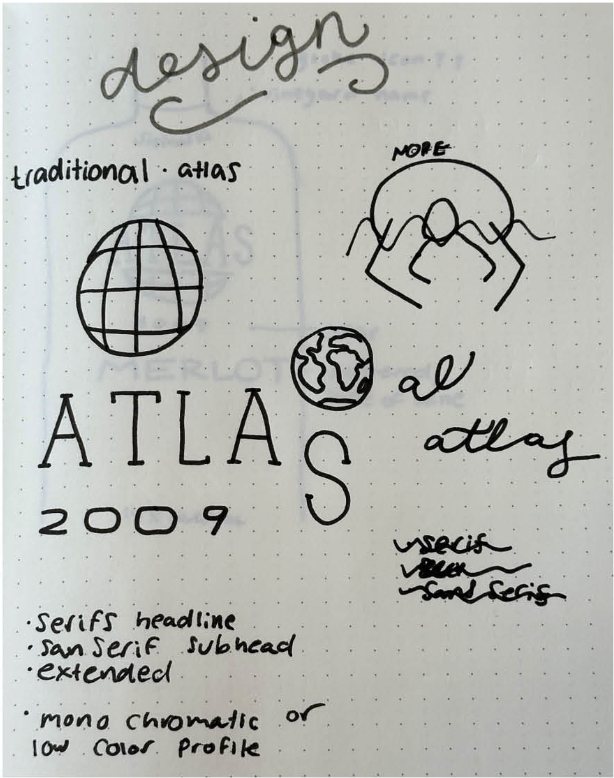 design
traditional · atlas
MORE
ATLAS
al
atlas
2009
serif
Sans Serif
· serifs headline
· san serif subhead
· extended
· mono chromatic or
low color profile
MERLOT